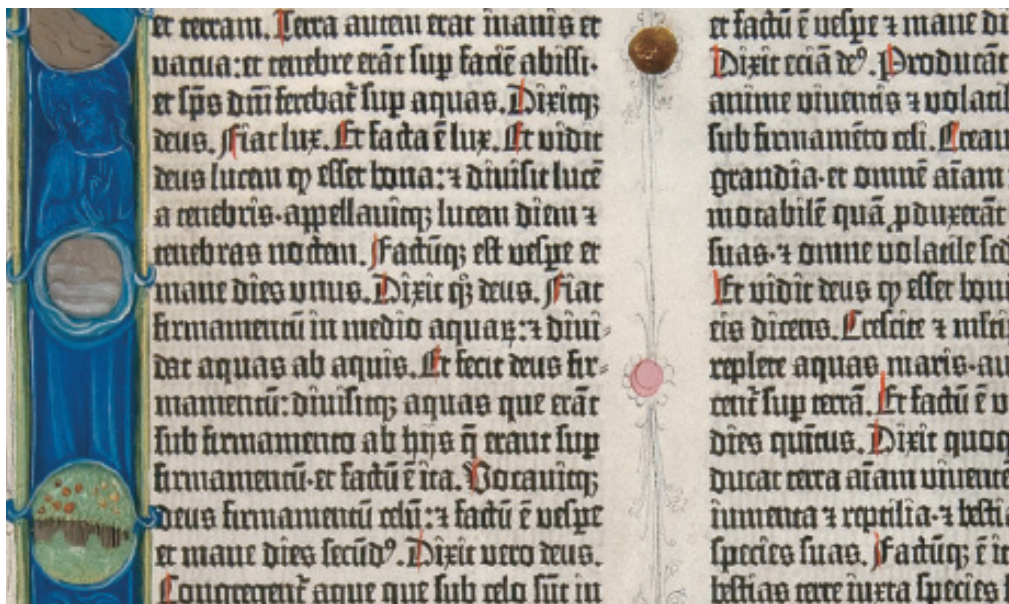 et terram. Terra autem erat inanis et
vacua: et tenebre erāt sup faciē abissi·
et sp̄s dn̄i ferebat̄ sup aquas. Dixitq;
deus. Fiat lux. Et facta ē lux. Et vidit
deus lucem ꝙ esset bona: ⁊ divisit lucē
a tenebris· appellavitq; lucem diem ⁊
tenebras noctem. Factūq; est vespe et
mane dies unus. Dixit qꝫ deus. Fiat
firmamentū in medio aquaꝝ: ⁊ divi-
dat aquas ab aquis. Et fecit deus fir-
mamentū: divisitq; aquas que erāt
sub firmamento ab hijs q̄ erant sup
firmamentū· et factū ē ita. Vocavitq;
deus firmamentū celū: ⁊ factū ē vespe
et mane dies secūdꝰ. Dixit vero deus.
Congregent̄ aque que sub celo sūt in
et factū ē vespe ⁊ mane di
Dixit eciā deꝰ. Producāt
anime viventis ⁊ volatil
sub firmamēto celi. Creau
grandia· et omnē aīam
motabilē quā ꝓduxerāt
suas· ⁊ omne volatile sed
Et vidit deus ꝙ esset bonu
eis dicens. Crescite ⁊ mlti
replete aquas maris· au
cent̄ sup terrā. Et factū ē v
dies quītus. Dixit quoq
ducat terra aīam viventē
iumenta ⁊ reptilia· ⁊ besti
species suas. Factūq; ē it
bestias terre iuxta species s